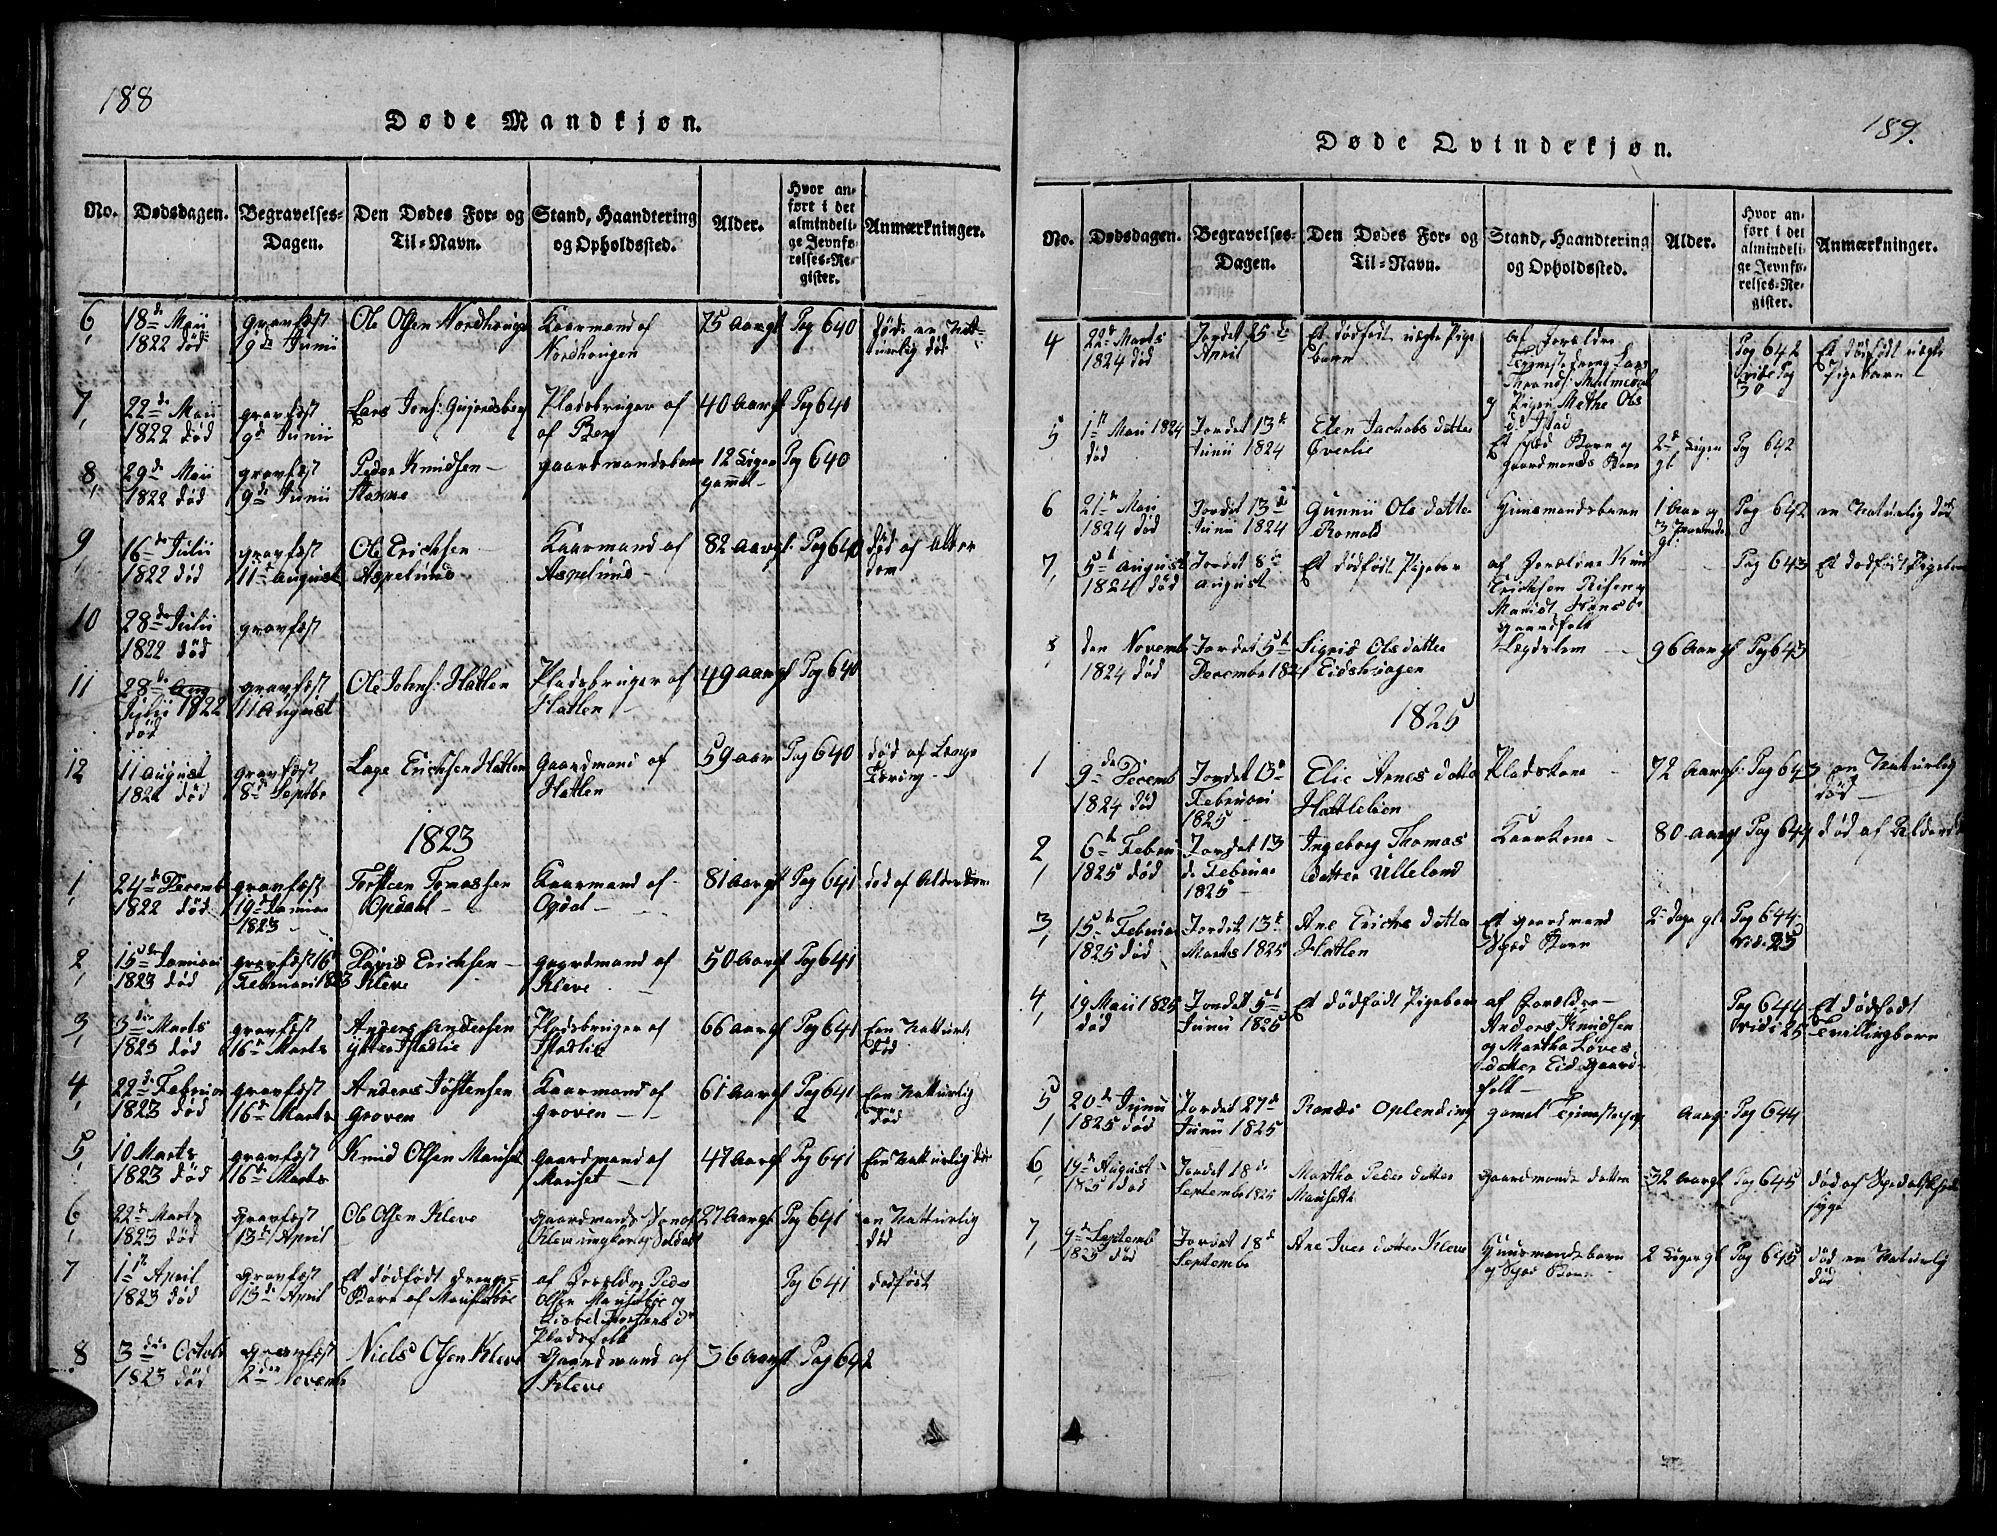 188
Døde Mandkjøn.
No.
Dødsdagen.
Begravelses-
Dagen.
Den Dødes For- og
Til-Navn.
Stand, Haandtering
og Opholdssted.
Alder.
Hvor an-
ført i det
almindeli-
ge Jevnfø-
relses-Re-
gister.
Anmærkninger.
6
18de Maii
1822 død
gravfæst
9de Junii
Ole Olsen
Kaarmand af
75 Aargl
Pag 640
7
22de Maii
1822 død
gravfæst
9de Junii
Lars Jons:
Pladsbruger af
af Berg
40 Aargl
Pag 640
8
29de Maii
1822 død
gravfæst
9de Junii
Peder Knudsen
gaardmandsbarn
12 Uger
gammel
Pag 640
9
16de Julii
1822 død
gravfæst
11te August
Ole Erichsen
Aspelund
Kaarmand af
Aspelund
82 Aargl:
Pag 640
død af Alder
dom
10
28de Julii
1822 død
gravfæst
11
28de
Julii 1822
død
gravfæst
11 August
Ole Johns: Hatlen
Pladsbruger af
Hatlen
49 Aargl
Pag 640
12
11 August
1822 død
gravfæst
8de Septbr
Lage Erichsen Hatlen
Gaardmand af
Hatlen
59 aar
Pag 640
død af
1823
1
24de Decemb
1822 død
gravfæst
19de
1823
Torsteen Tomassen
Opdahl
Kaarmand af
Opdal
81 Aargl
Pag 641
død af Alderdom
2
15de
1823 død
gravfæst 16
Februari 1823
Erichsen
Kleve
gaardmand af
Kleve
50 Aargl
Pag 641
3
3die Marts
1823 død
gravfæst
16de Marts
Anders Andersen
ytter Istadlie
Pladsbruger af
Istadlie
66 aargl
Pag 641
død
4
22de Februari
1823 død
gravfæst
16de Marts
Anders Jostensen
Groven
Kaarmand af
Groven
61 Aargl
Pag 641
Een Natturlig
Død
5
10 Marts
1823 død
gravfæst
16de Marts
Knud Olsen Mauset
gaardmand af
Mauset
47 Aargl
Pag 641
Een Natturlig død
6
22de Marts
1823 død
Gravfæst
13de April
Ole Olsen Kleve
Gaardmands Søn af
Kleve ungkarl og Soldat
27 Aargl
Pag 641
en Natturlig
død
7
1ste April
1823 død
Gravfæst
13de April
Et dødfødt drenge
Barn af
af Forældre Peder
Olsen
Pladsfolk
Pag 641
dødfødt
8
3die Octob
1823 død
Gravfæst
2den Novemb
Niels Olsen Kleve
Gaardmand af
Kleve
36 Aargl
Pag 642
189.
Døde Qvindekjøn.
No.
Dødsdagen.
Begravelses-
Dagen.
Den Dødes For- og
Til-Navn.
Stand, Haandtering
og Opholdssted.
Alder.
Hvor an-
ført i det
almindeli-
ge Jevnfø-
relses-Re-
gister.
Anmærkninger.
4
22de Marts
1824 død
Jordet 25de
April
Et dødfødt uægte Pige
barn
af Forældre
Pigen Methe Ols
Pag 642
30
Et dødfødt uægte
Pigebarn
5
1ste Maii 1824
død
Jordet 13de
Junii 1824
Elen Jachobs datter
Øverlie
Et spæd Barn og
Gaardmands Barn
2de Uger
gl
Pag 642
6
21de Maii
1824 død
Jordet 13de
Junii 1824
Gunnu Ols datter
Huusmandsbarn
1 Aar og
Pag 642
en Naturlig død
7
5te August
1824 død
Jordet 8de
August
Et dødfødt Pigebar
af Forældre Knu
Erichsen
gaardfolk
Pag 643
Et dødfødt Pigebarn
8
den Novemb
1824 død
Jordet 5te
Decembr 1824
Sigrid Ols datter
Eidshaagen
Legdslem
96 Aargl
Pag 643
1825
1
9de Decemb
1824 død
Jordet 13de
Februari
1825
Elie Arnes datter
Hattlelien
Pladskone
72 Aargl:
Pag 643
en Naturlig
død
2
6te Februa
1825 død
Jordet 13
de Februar
1825
Ingeborg Thomas
datter Ulleland
Kaarkone
80 Aargl
Pag 644
død af Alderd
3
15de Februar
1825 død
Jordet 13de
Marts 1825
Ane Erichs datter
Hatlen
Et gaardmand
Spæd Barn
2 Dage gl
Pag 644
vide 25
4
19 Maii 1825
død
Jordet 5te
Junii 1825
Et dødfødt Pigebarn
af Forældre
Anders Knudsen
og Martha
datter Eide Gaard-
folk
Pag 644
vide 25
Et dødfødt
Tvillingbarn
5
20de Junii
1825 død
Jordet 27de
Junii 1825
Oplending
gamel
Aargl:
Pag 644
6
19de August
1825 død
Jordet 18de
Septembr 1825
Martha Peders datter
Mauseth
Gaardmands datter
32 Aargl
Pag 645
død af Spedalskheds
syge
7
9de Septemb
1825 død
Jordet 18de
Septembr
Ane Ivers datter Kleve
Huusmandsbarn
og Spæd Barn
2 Uger gl
Pag 645
død en Naturlig
død